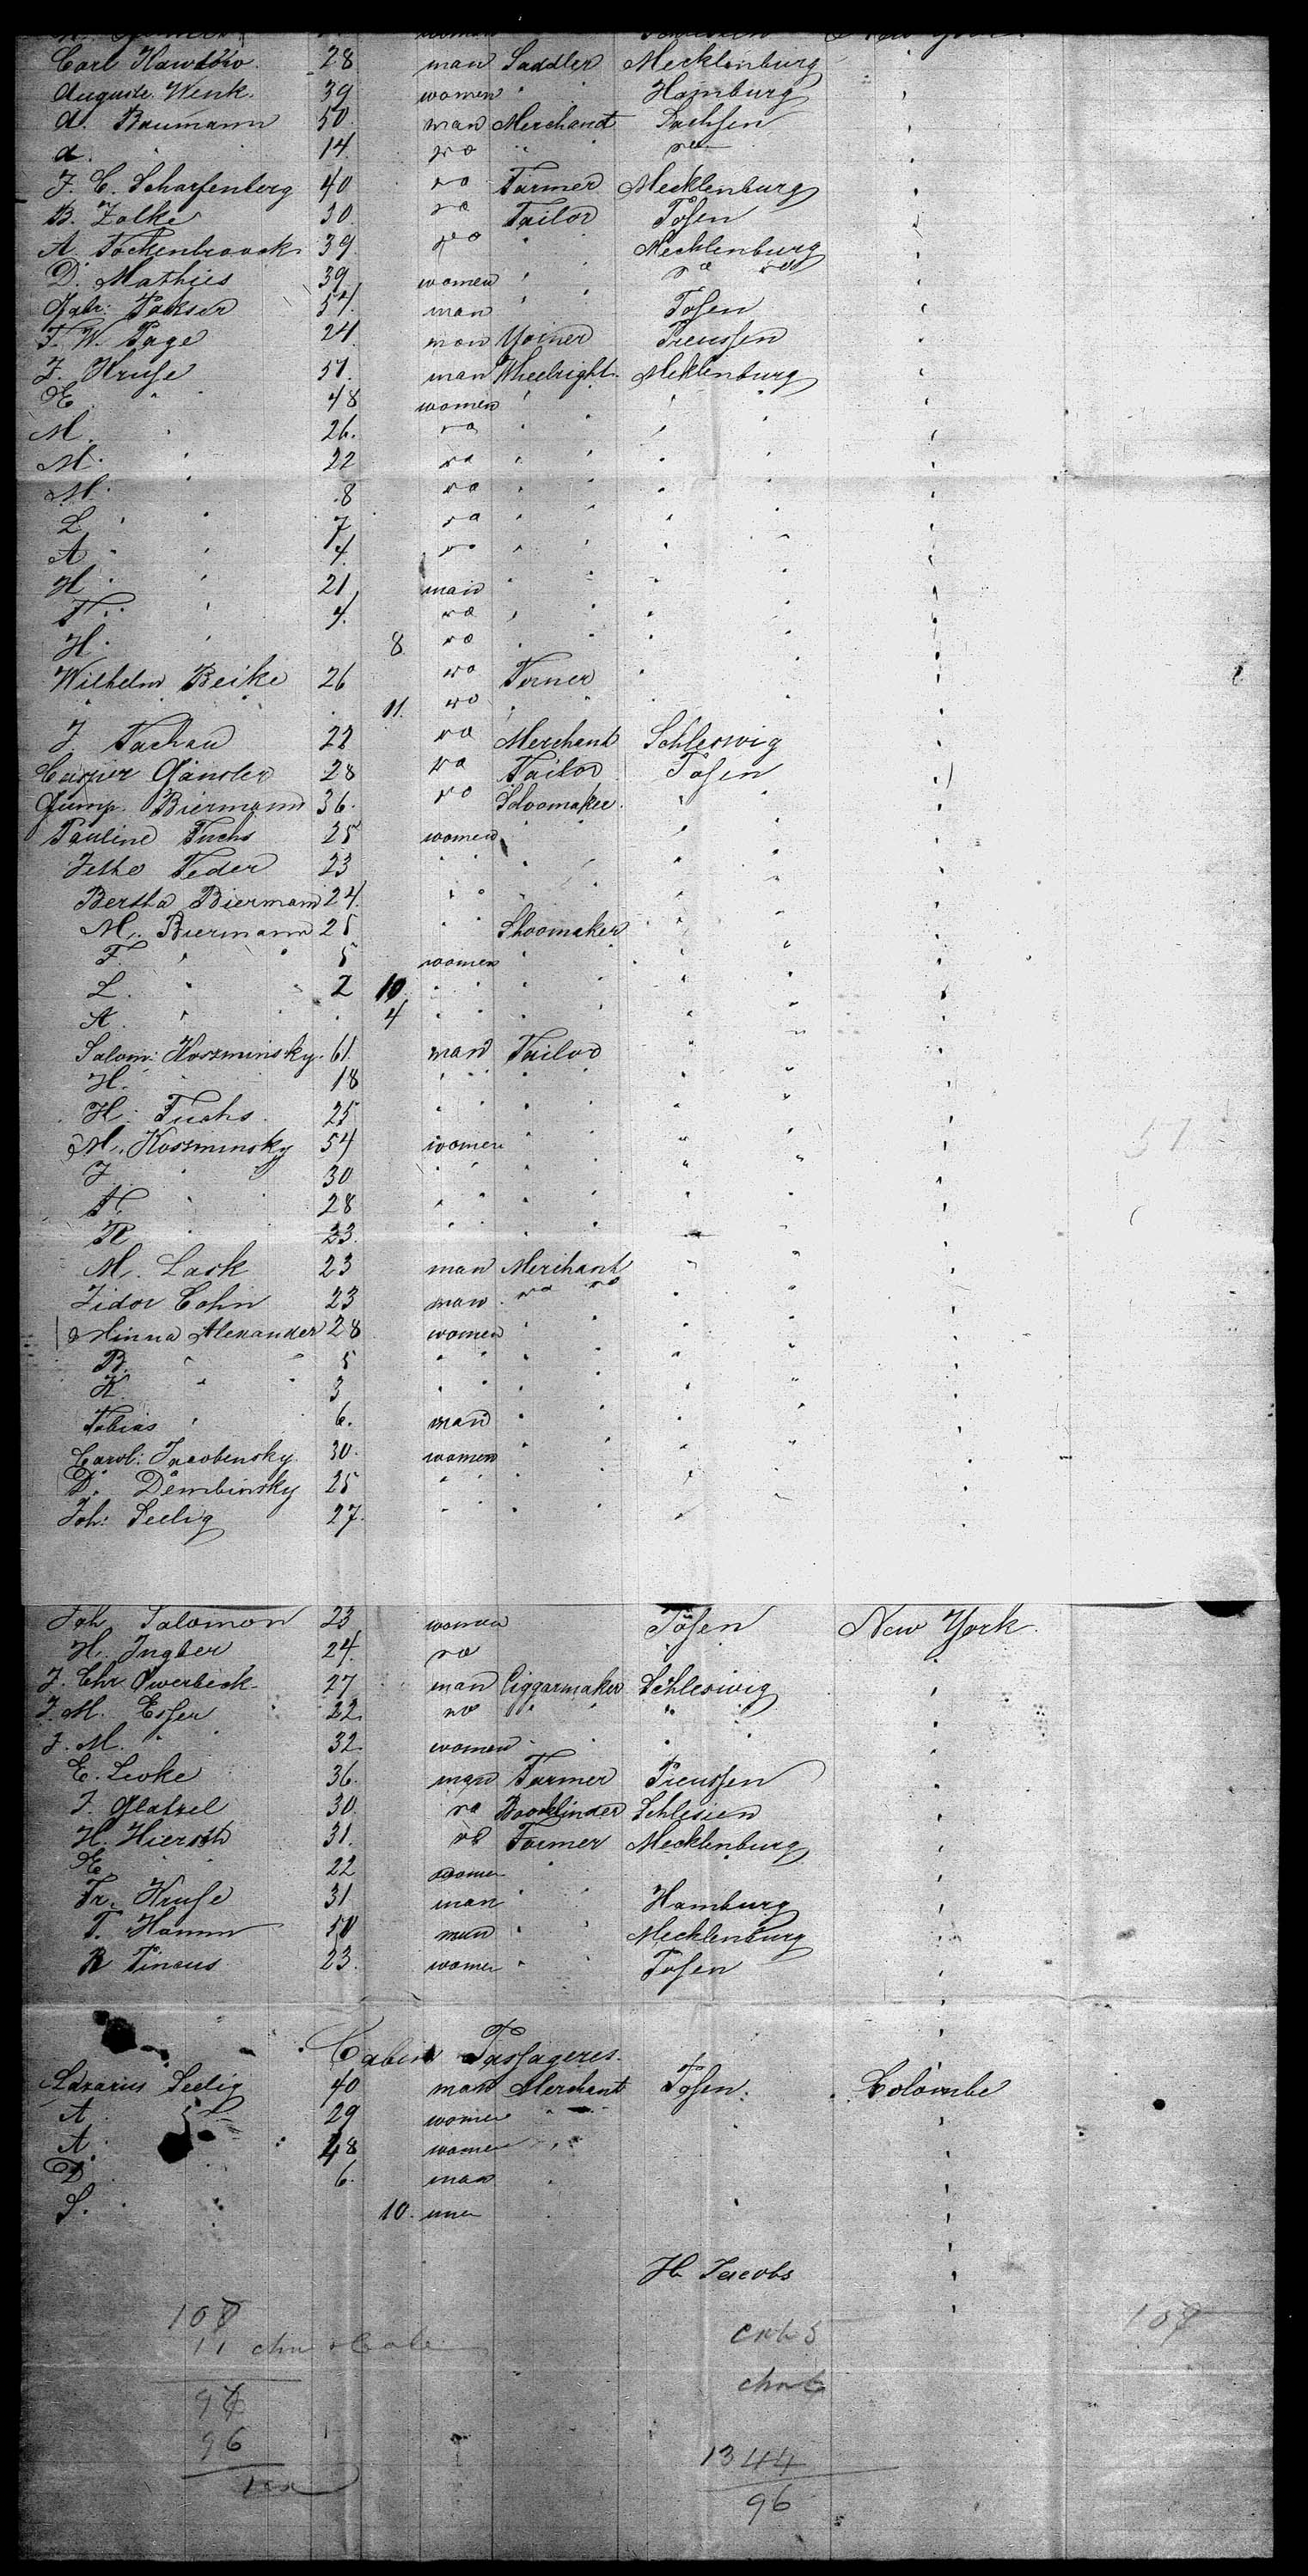 Carl 28 man Saddler Mecklenburg
Auguste Wenk 39 women " Hamburg
A. Baumann 50 man Merchant Sachsen
A. " 14 do " do
J. C. Scharfenberg 40 do Farmer Mecklenburg
B. Zolke 30 do Tailor Posen
A. 39 do " Mecklenburg
D. Mathies 39 women " do do
57 man " Posen
F. W. Page 24 man Yoiner Preussen
J. Kruse 57 man Wheelright Meklenburg
E. " 48 women " "
M. " 26 do " "
M. " 22 do " "
M. " 8 do " "
L. " 7 do " "
A. " 4 do " "
H. " 21 man " "
F. " 4 do " "
H. " 8 do " "
Wilhelm Beike 26 do "
" " 11 do " "
J. Tachau 22 do Merchant Schleswig
Casper Gänsler 28 do Tailor Posen
Gump. Biermann 36 do Shoomaker "
Pauline Fuchs 25 women " "
Jethe Feder 23 " " "
Bertha Biermann 24 " " "
M. Biermann 25 " Shoomaker "
F. " 5 women " "
L. " 2 10 " " "
A. " 4 " " "
Salom: Koszminsky 61 man Tailor "
H. " 18 " " "
H. Fuchs 25 " " "
M. Koszminsky 54 women " "
J. " 30 " " "
" 28 " " "
R. " 23 " " "
M. Lask 23 man Merchant "
Isidor Cohn 23 man do do "
Minna Alexander 28 women " "
B. " 5 " " "
K. " 3 " " "
Tobias " 6 man " "
Carol: Jacobensky 30 women " "
D. Dembinsky 25 " " "
Joh: Seelig 27 " " "
Joh. Salomon 23 women Posen New York
H. Ingber 24 do " "
J. Chr. Owerbeck 27 man Ciggarmaker Schleswig "
J. M. Esser 22 do " " "
J. M. " 32 women " " "
E. Leoke 36 man Farmer Preussen "
J. Glatzel 30 do Bookbinder Schlesien "
H. Hieroth 31 do Farmer Mecklenburg "
E. " 22 women " " "
Fr. Kruse 31 man " Hamburg "
T. Hamm 50 man " Mecklenburg "
R. Pincus 23 women " Posen "
Cabin Passageres
Lazarus Seelig 40 man Merchant Posen Colombe
A. 29 women " "
A. 48 women " "
D. 6 man " "
S. 10 "
H. Jacobs
107
11
96
1344
96